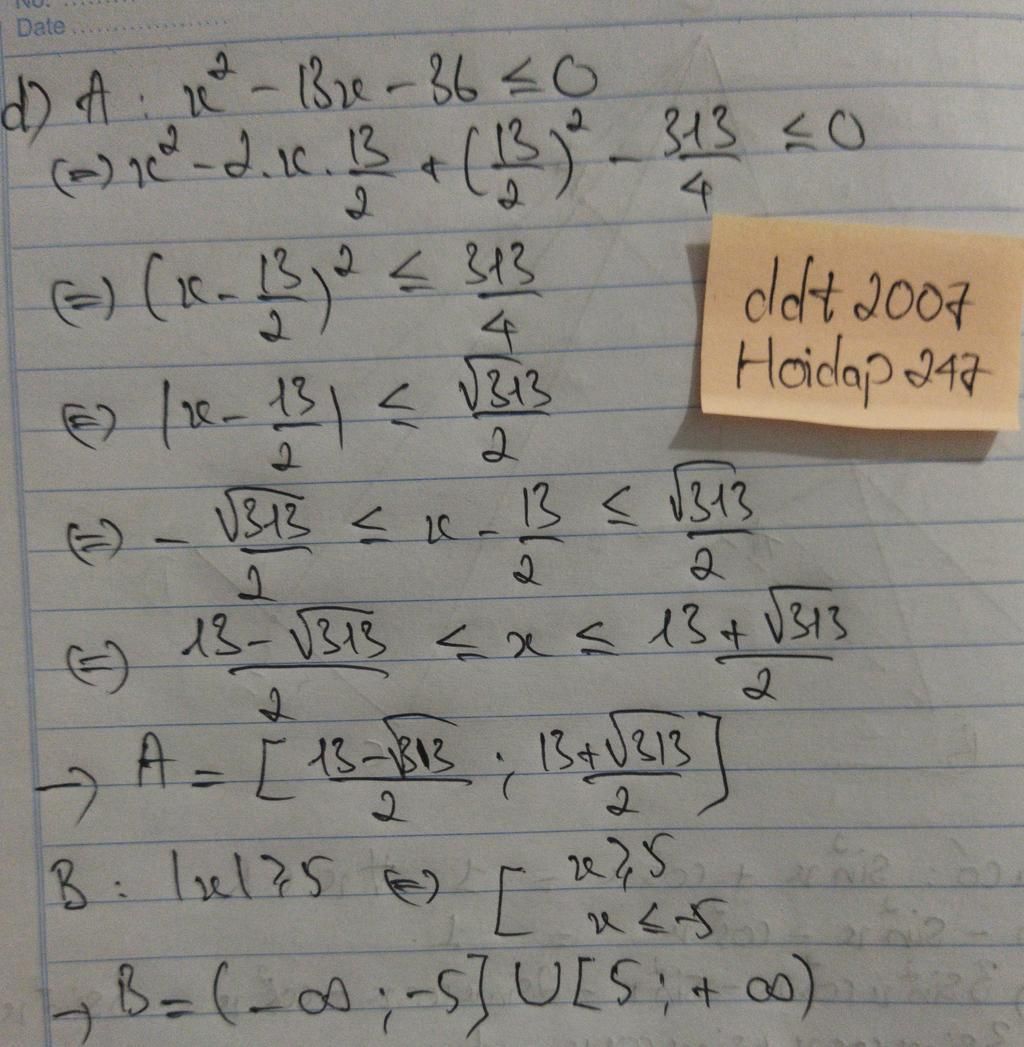 No. ............
Date ....................
d) A : x² - 13x - 36 ≤ 0
(=) x² - 2.x.13/2 + (13/2)² - 313/4 ≤ 0
(=) (x - 13/2)² ≤ 313/4
(=) |x - 13/2| ≤ √313/2
(=) - √313/2 ≤ x - 13/2 ≤ √313/2
(=) (13 - √313)/2 ≤ x ≤ (13 + √313)/2
→ A = [(13 - √313)/2 ; (13 + √313)/2]
B : |x| ≥ 5 (=) [ x ≥ 5
x ≤ -5
→ B = (-∞ ; -5] ∪ [5 ; +∞)
ddt 2007
Hoidap 247